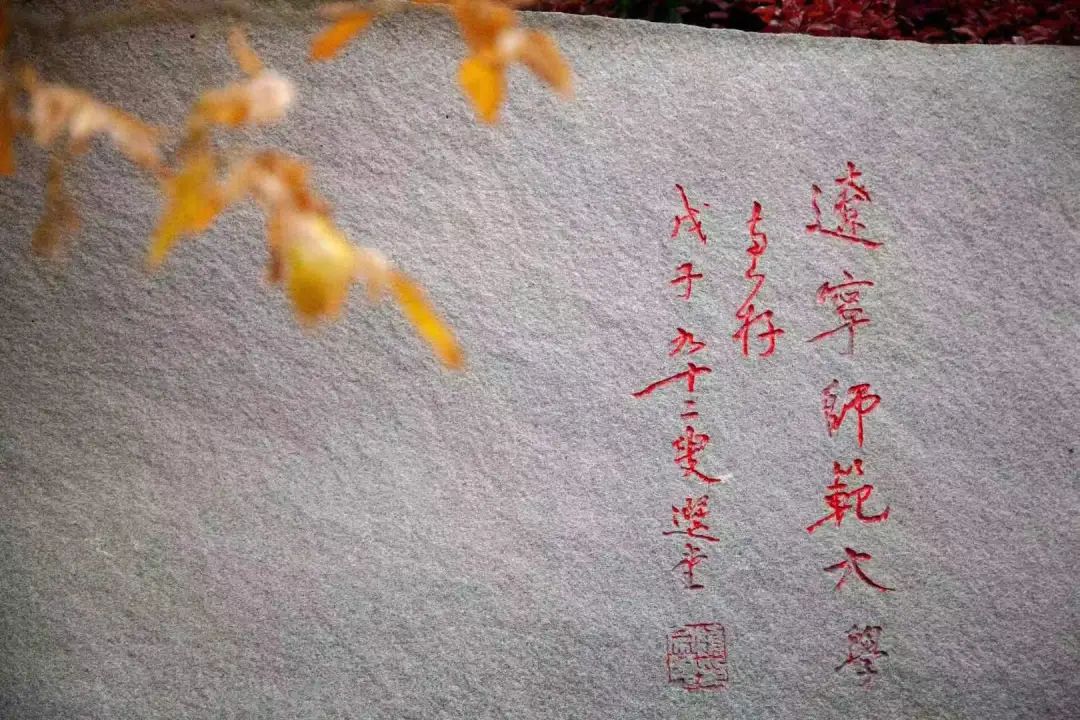 遼寧師範大學
存
戊子九十二叟選堂